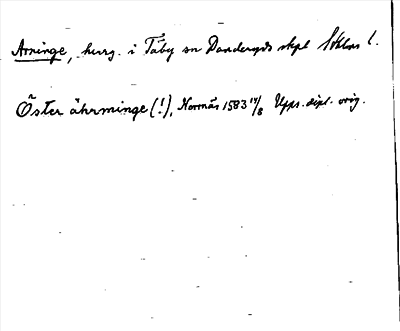 Arninge, herrg. i Täby sn Danderyds skpl Sthlms l.
Öster ährninge (!), Norrnäs 1583 14/8 Upps. dipl. orig.